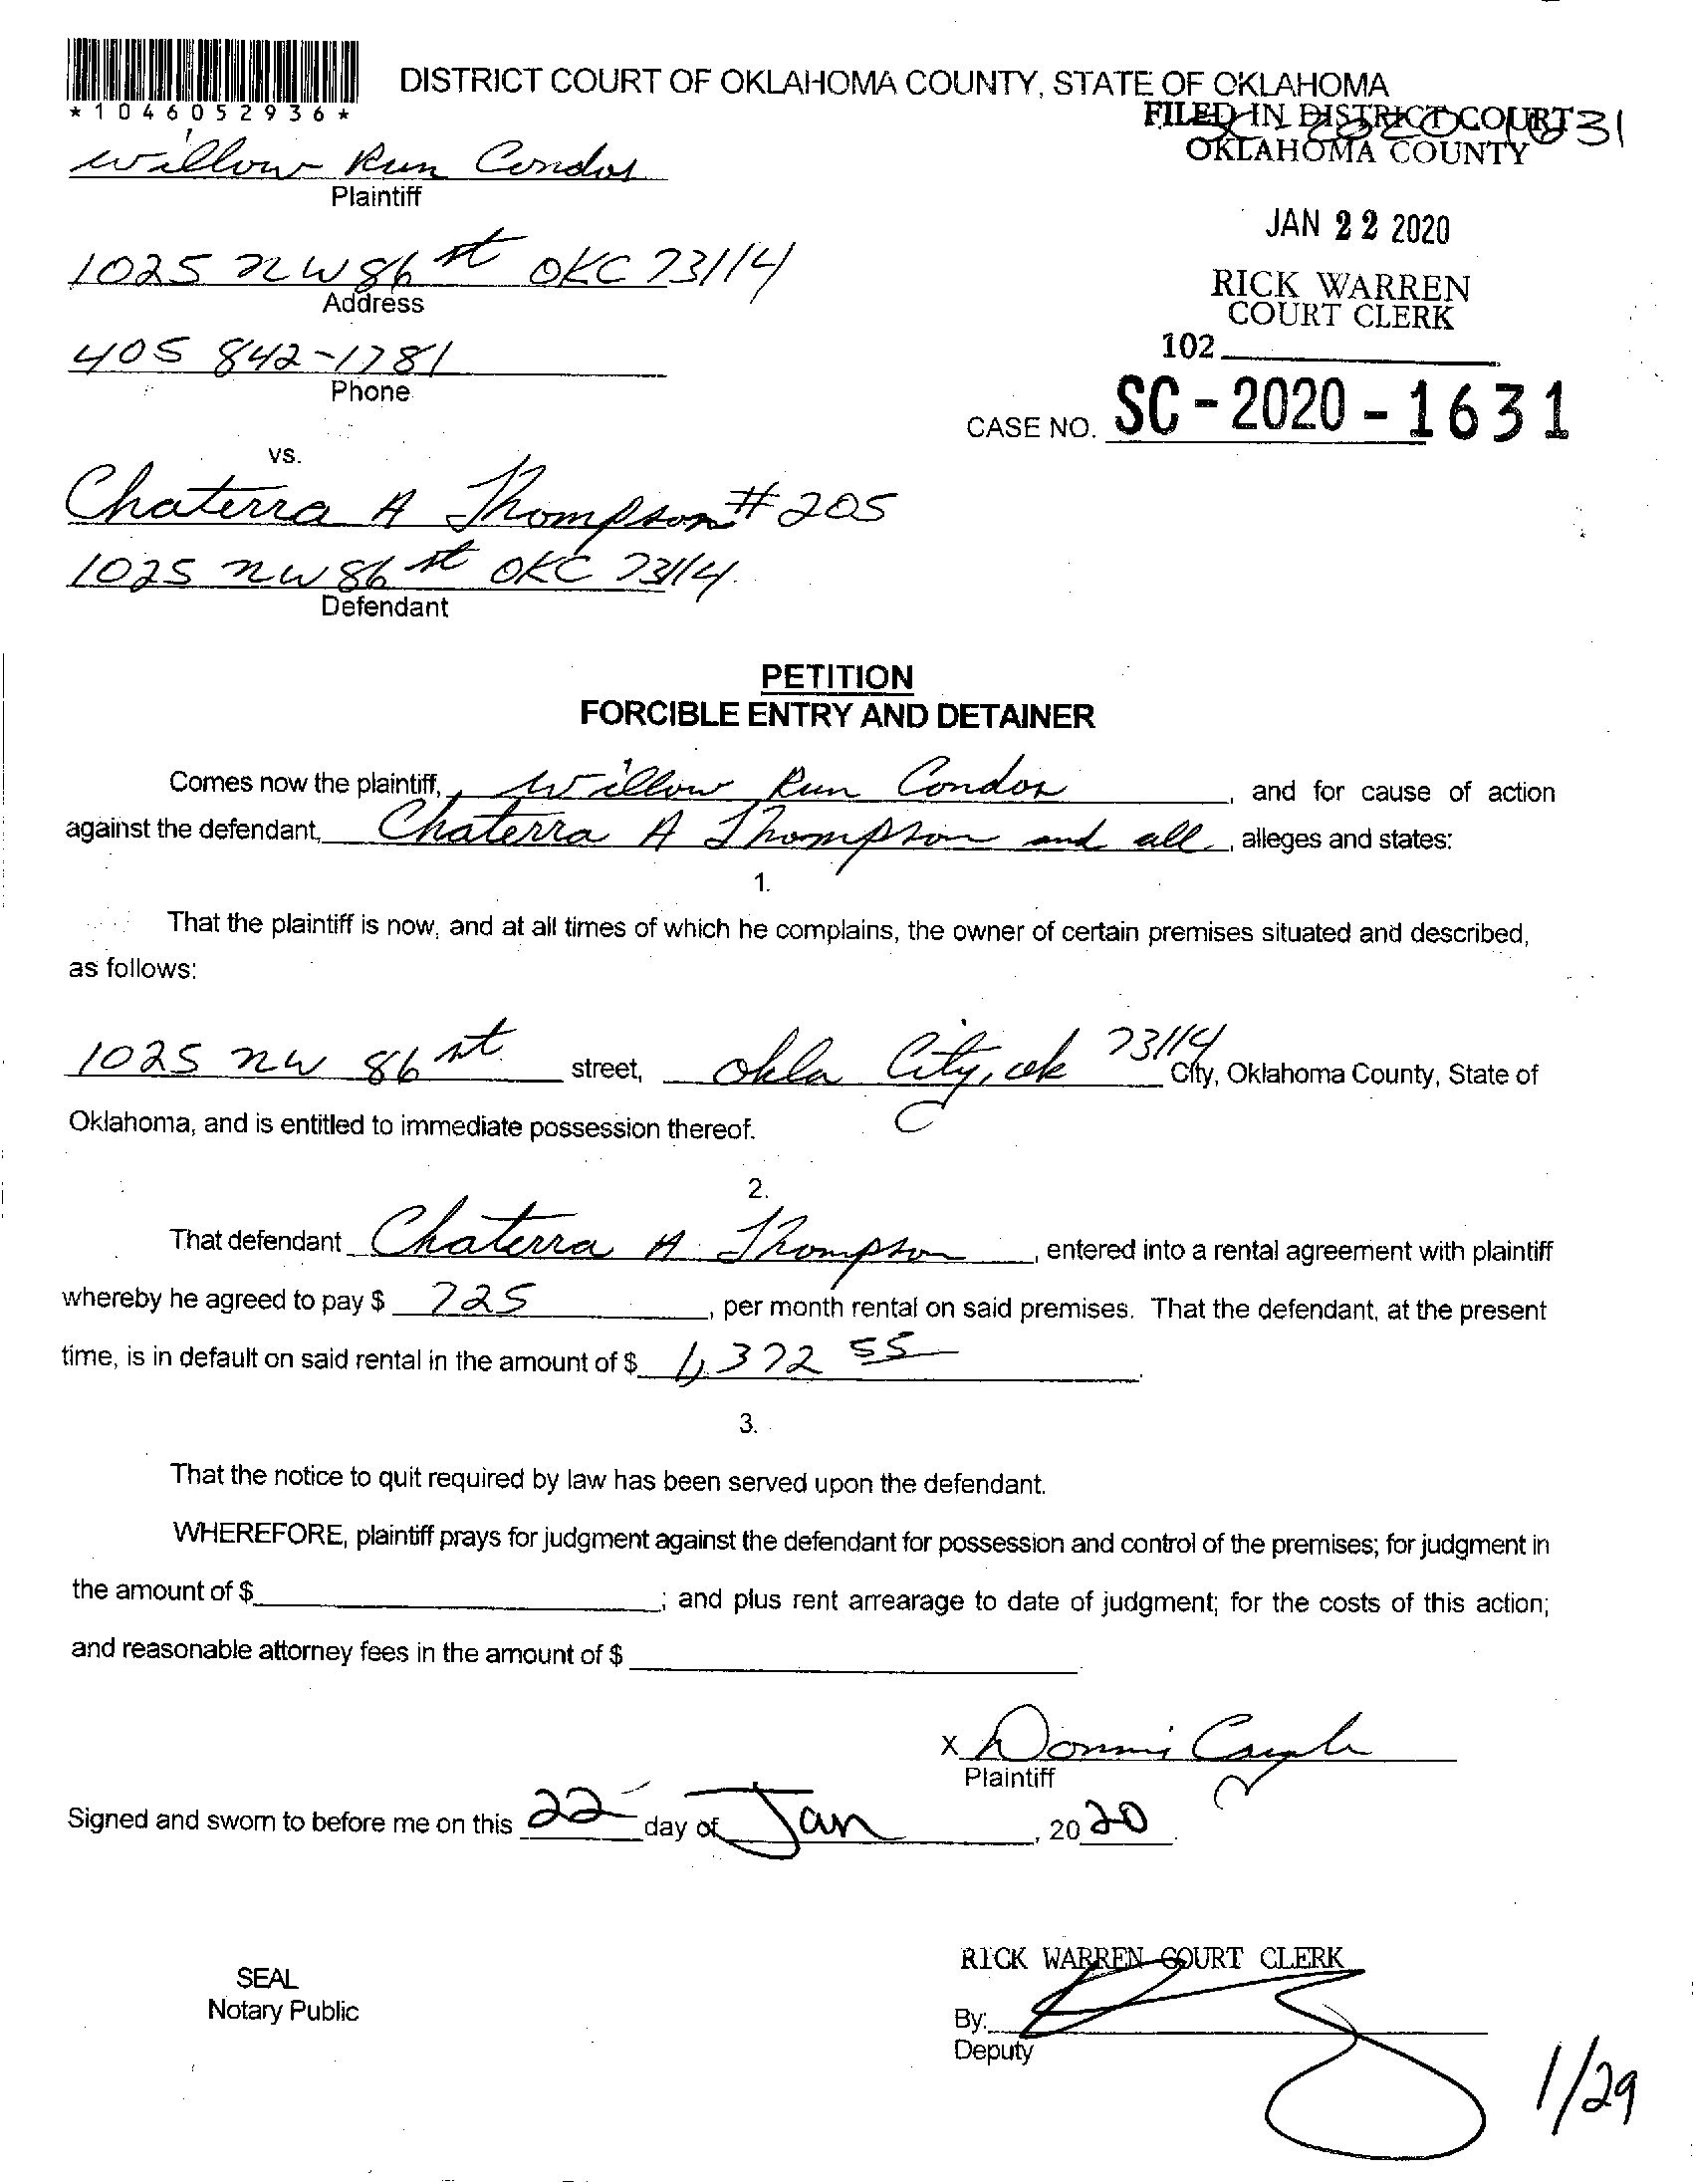 DISTRICT COURT OF OKLAHOMA COUNTY, STATE OF OKLAHOMA
*1046052936*
FILED IN DISTRICT COURT
OKLAHOMA COUNTY
Willow Run Condos
Plaintiff
JAN 22 2020
1025 NW 86 st OKC 73114
Address
RICK WARREN
COURT CLERK
102
405 842-1781
Phone
CASE NO. SC-2020-1631
vs.
Chaterra A Thompson #205
1025 NW 86 st OKC 73114
Defendant
PETITION
FORCIBLE ENTRY AND DETAINER
Comes now the plaintiff, Willow Run Condos, and for cause of action
against the defendant, Chaterra A Thompson and all, alleges and states:
1.
That the plaintiff is now, and at all times of which he complains, the owner of certain premises situated and described,
as follows:
1025 NW 86 st. street, Okla City, ok 73114 City, Oklahoma County, State of
Oklahoma, and is entitled to immediate possession thereof.
2.
That defendant Chaterra A Thompson, entered into a rental agreement with plaintiff
whereby he agreed to pay $ 725, per month rental on said premises. That the defendant, at the present
time, is in default on said rental in the amount of $ 1,372 55.
3.
That the notice to quit required by law has been served upon the defendant.
WHEREFORE, plaintiff prays for judgment against the defendant for possession and control of the premises; for judgment in
the amount of $ ; and plus rent arrearage to date of judgment; for the costs of this action;
and reasonable attorney fees in the amount of $
X
Plaintiff
Signed and sworn to before me on this 22 day of Jan, 2020.
RICK WARREN COURT CLERK
SEAL
Notary Public
By:
Deputy
1/29